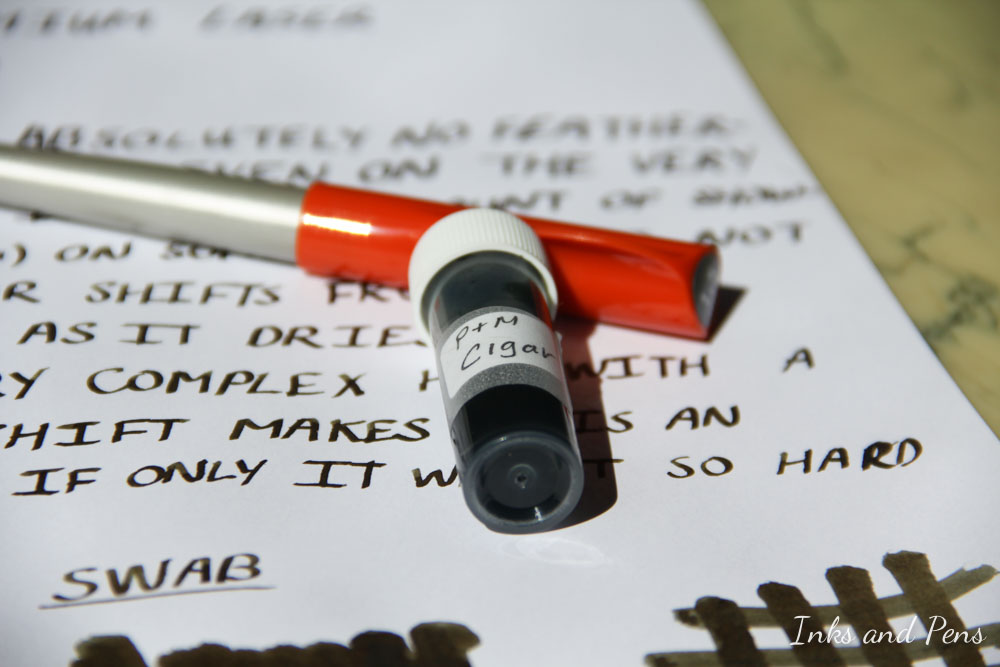 ABSOLUTELY NO FEATHER-
ON THE VERY
OF
ON NOT
SHIFTS
AS IT DRIE
P+M
Cigar
COMPLEX WITH A
SHIFT MAKES IS AN
IF ONLY IT SO HARD
SWAB
Inks and Pens